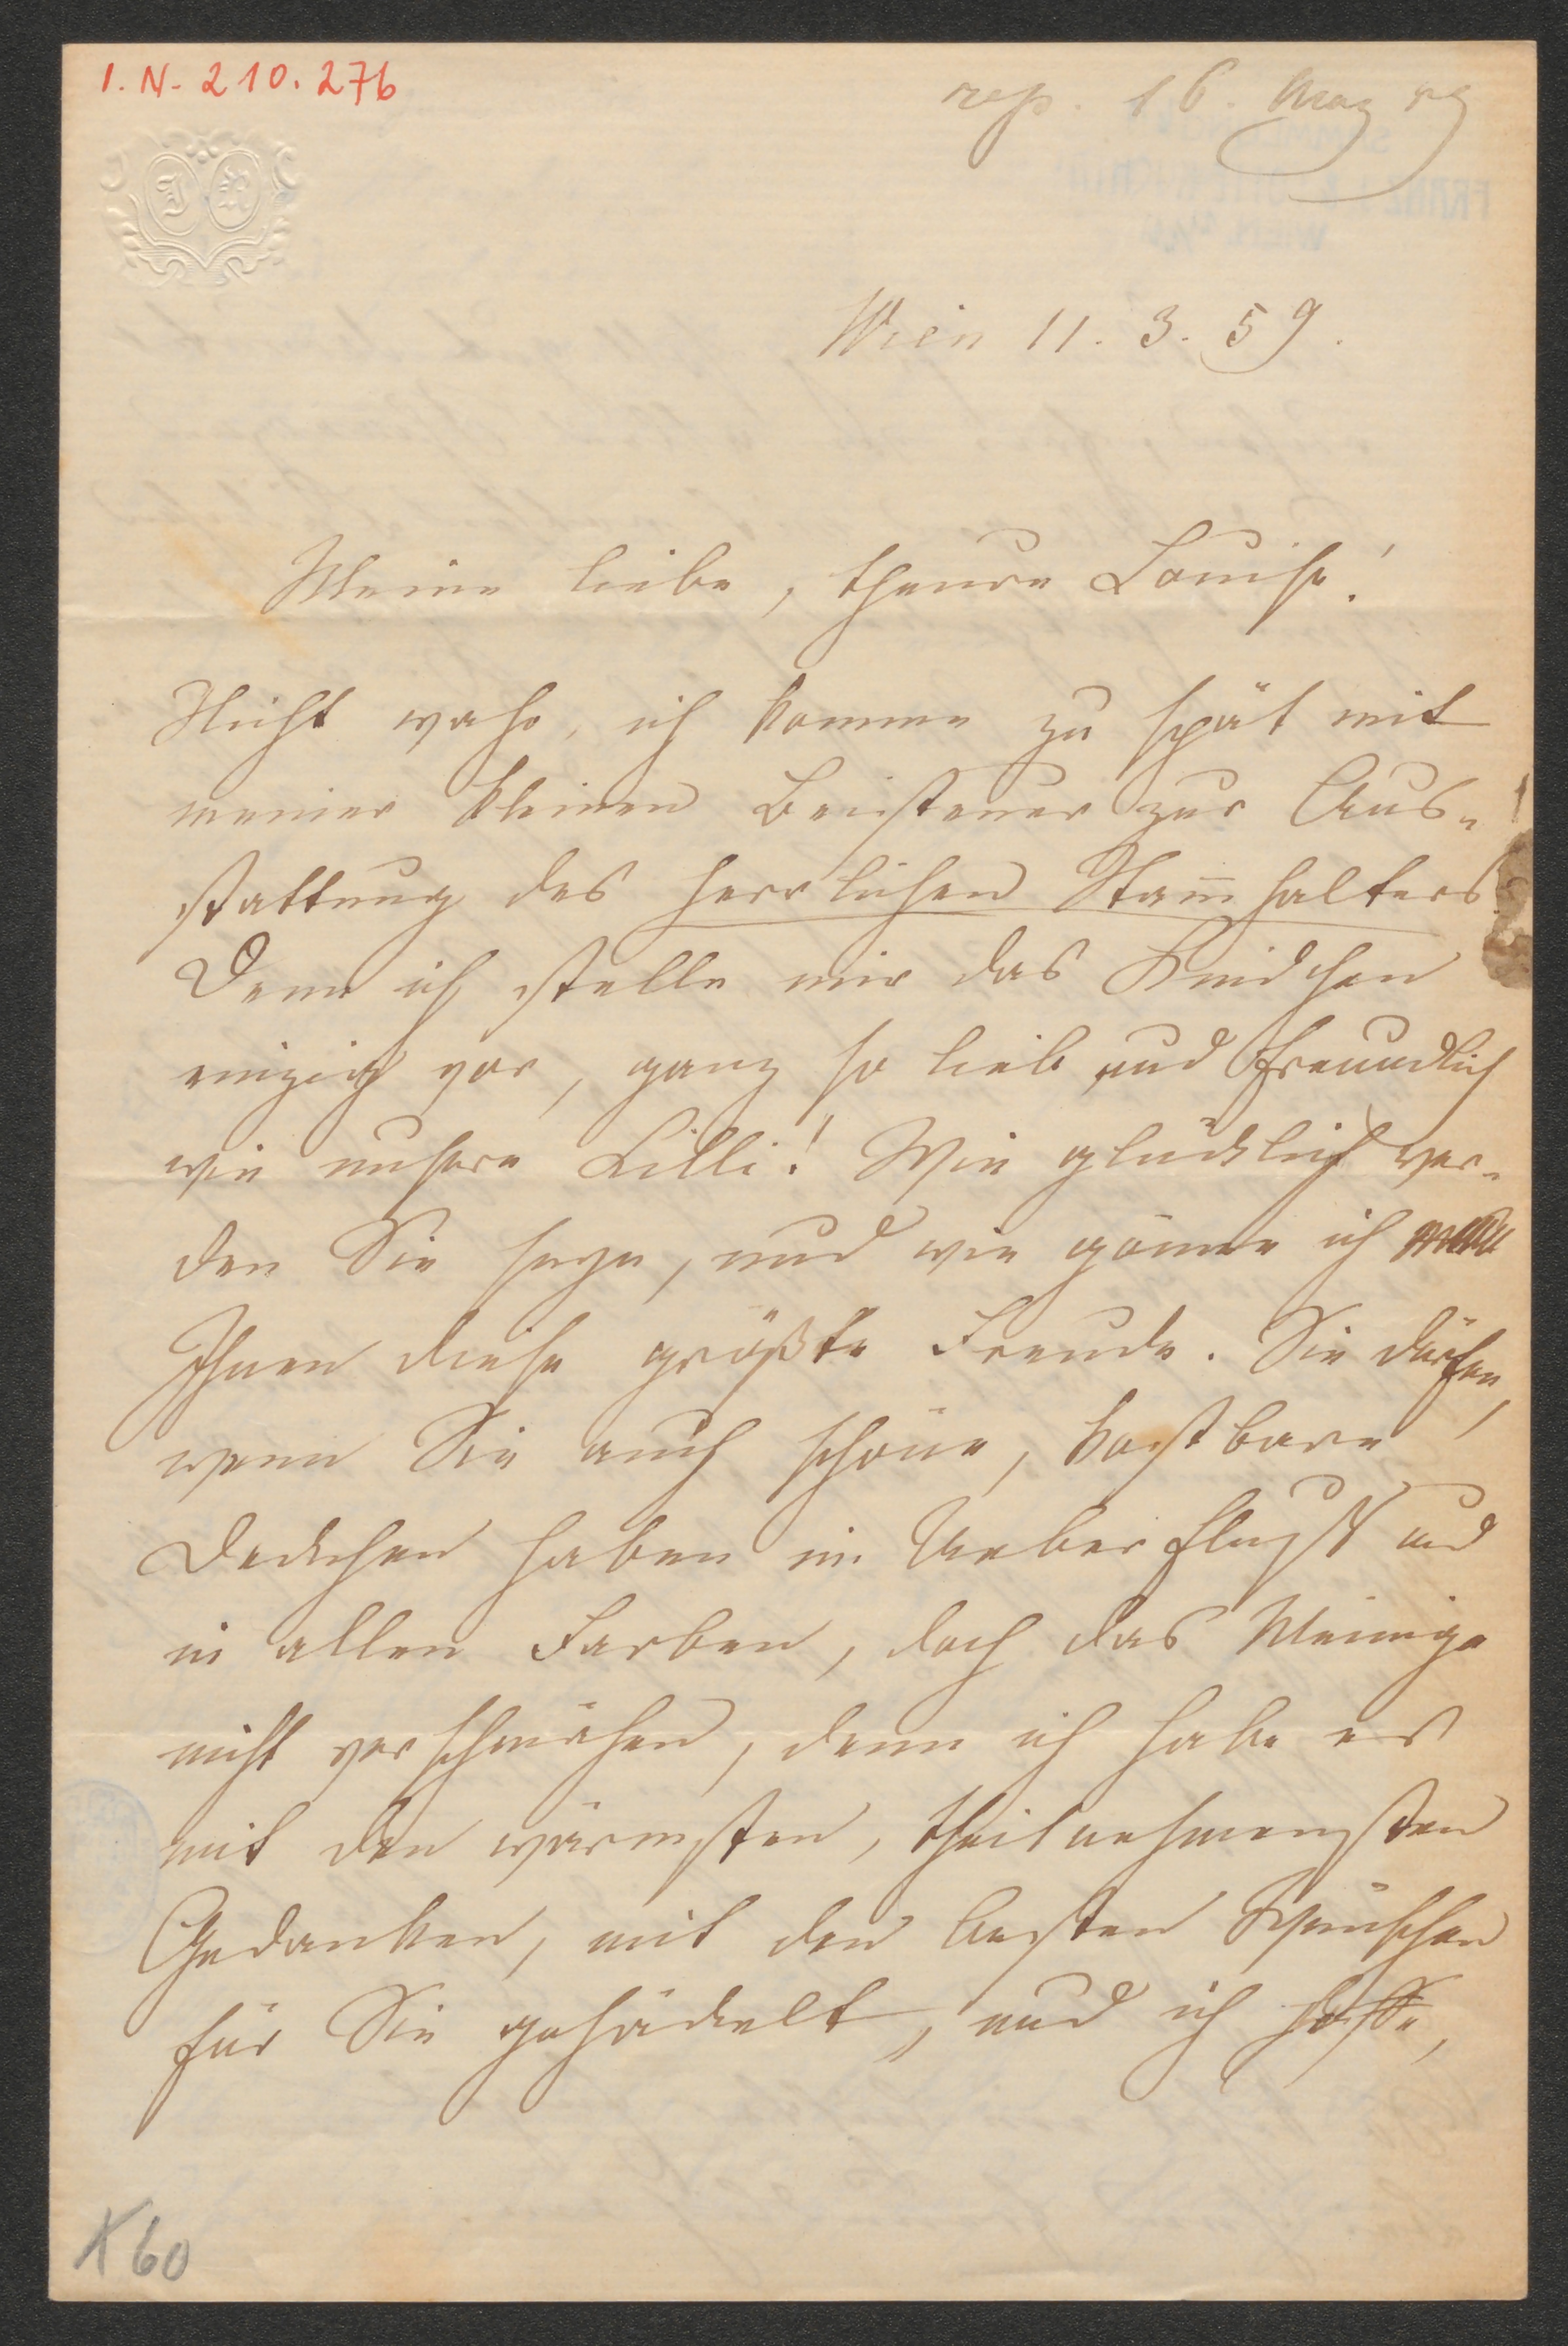 I. N. 210.276
rep. 16. May 59
J R
Wien 11. 3. 59.
Meine liebe, theure Louise!
Nicht wahr, ich komme zu spät mit
meiner kleinen Beisteuer zur Aus-
stattung des herrlichen Stam̅halters.
Denn ich stelle mir das Kindchen
einzig vor, ganz so lieb und freundlich
wie unsere Lilli! Wie glücklich wer-
den Sie seyn, und wie gönne ich
Ihnen diese größte Freude. Sie dürfen,
wenn Sie auch schöne, kostbare
Deckchen haben im Ueberflußt und
in allen Farben, doch das Meinige
nicht verschmähen, denn ich habe es
mit den wärmsten, theilnehmensten
Gedanken, mit den besten Wünschen
für Sie gehäckelt, und ich hoffe,
K 60